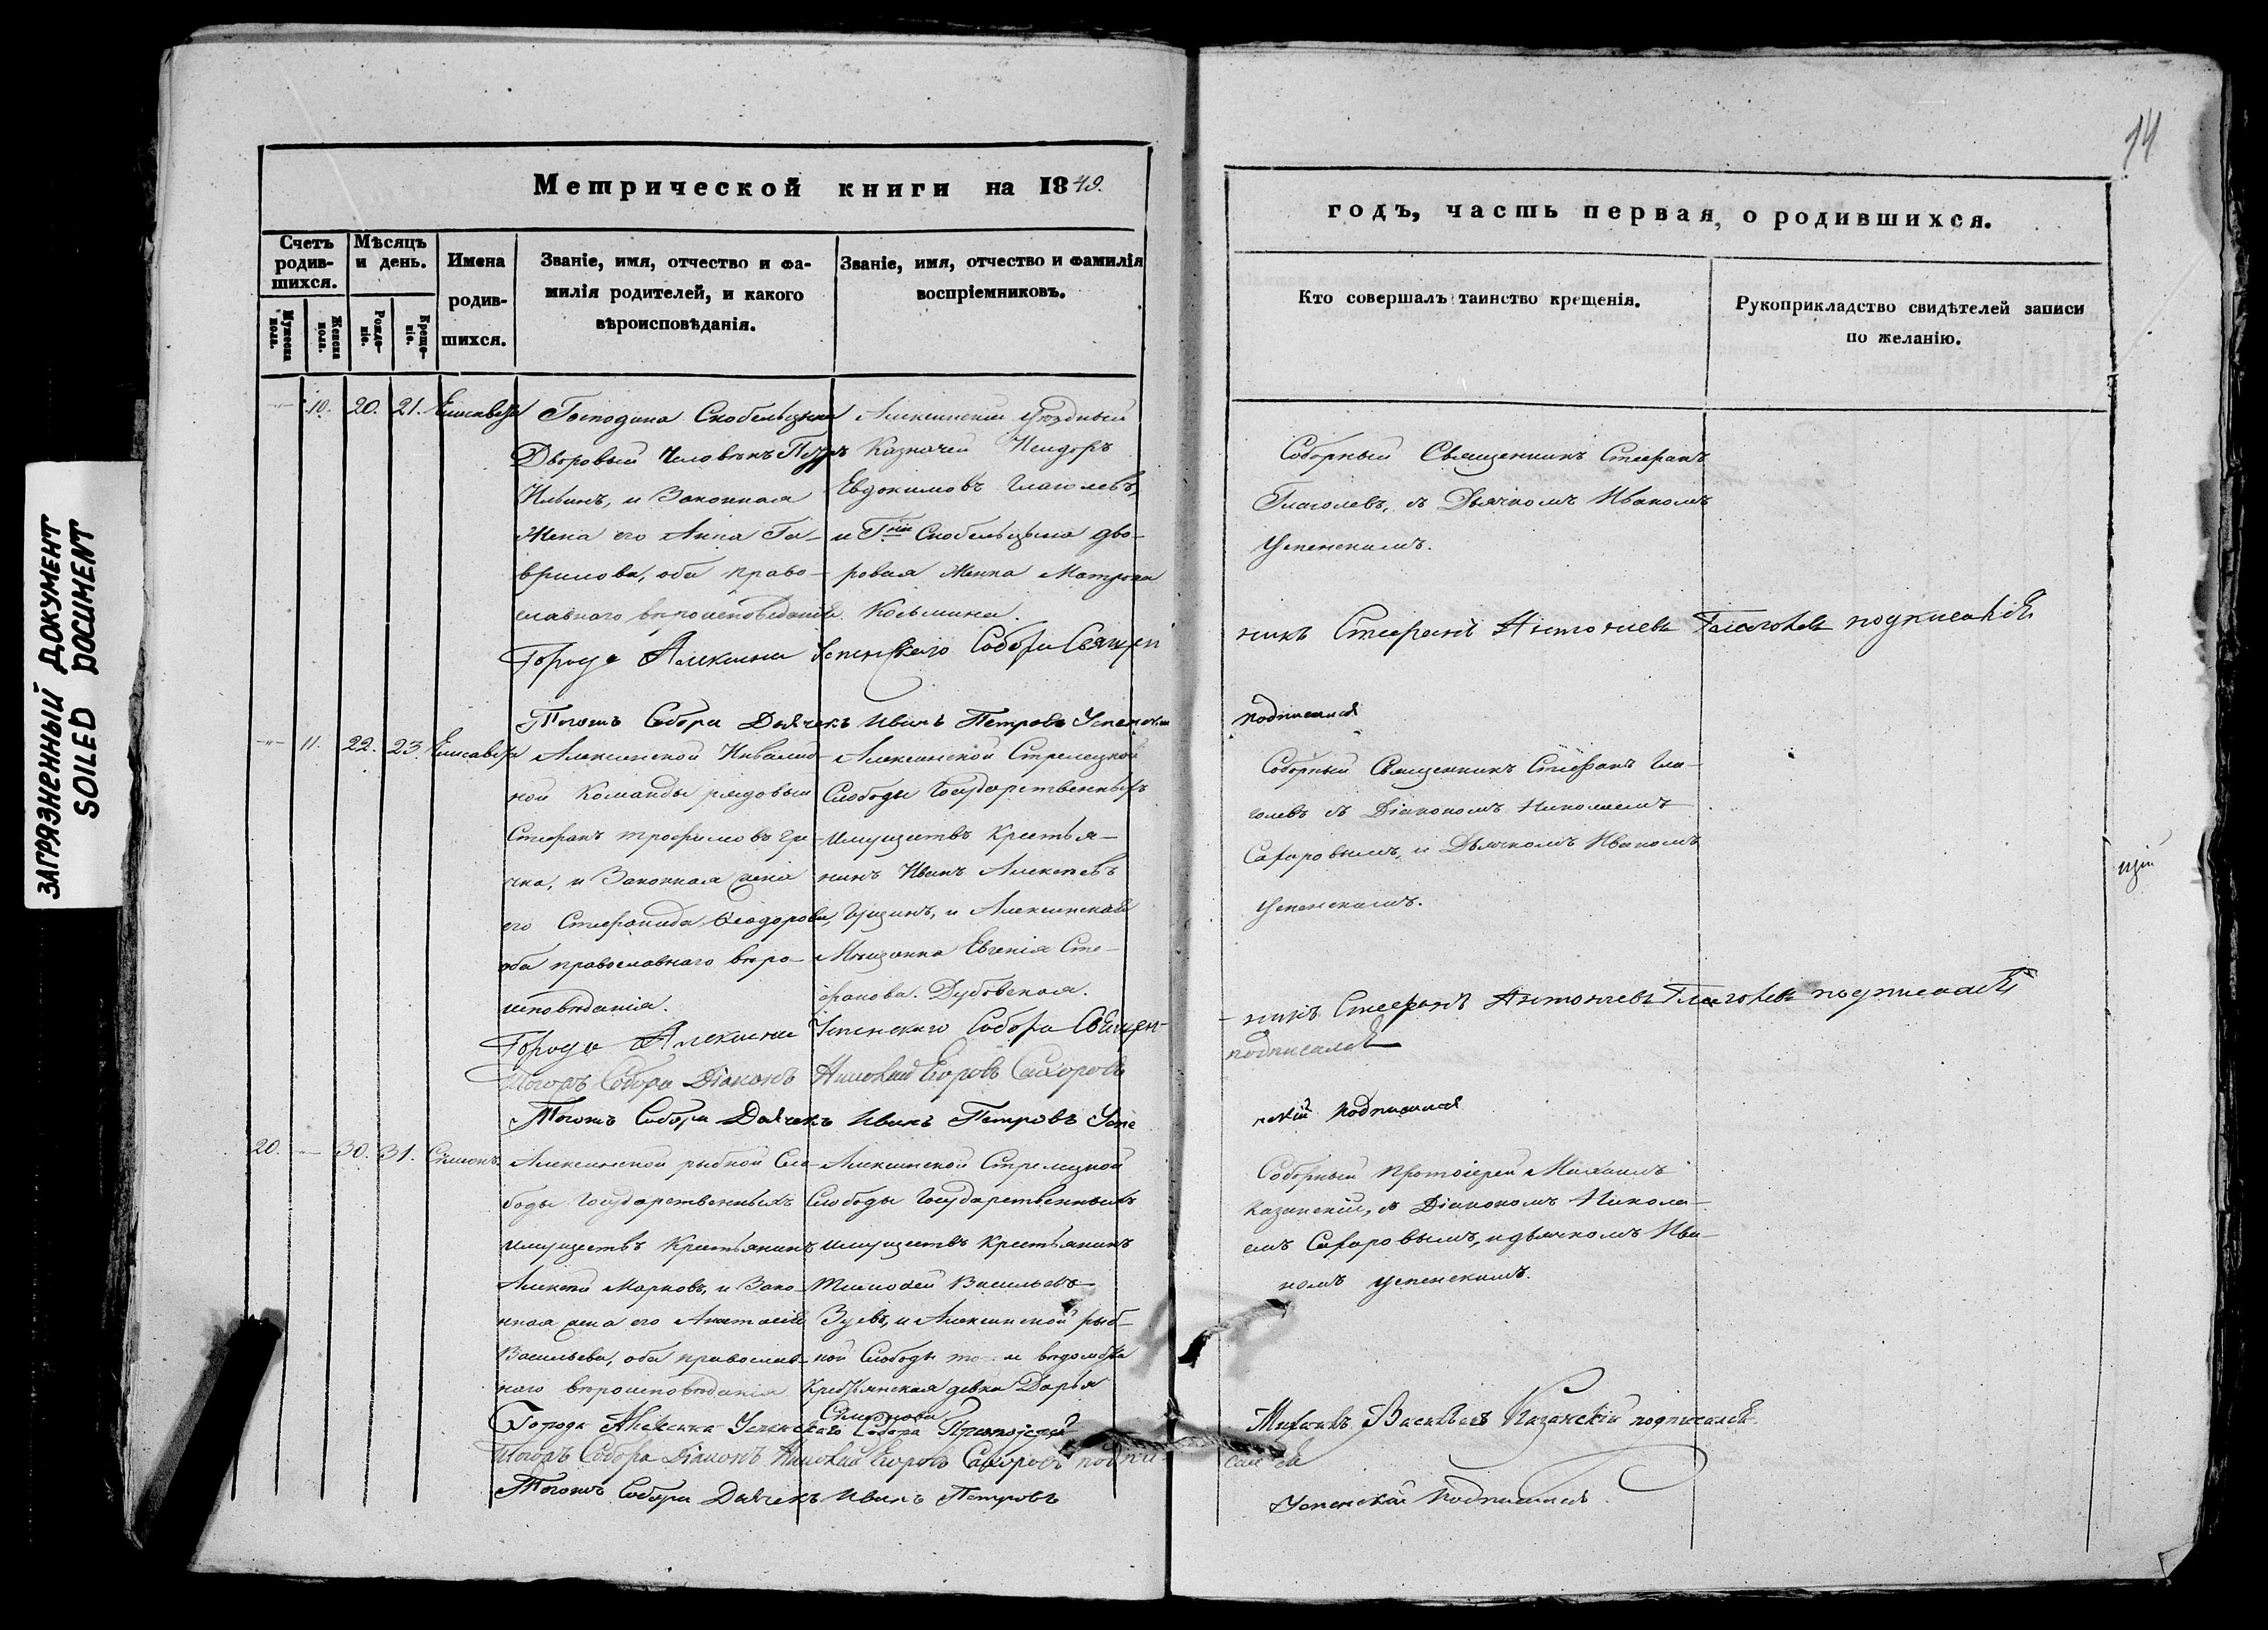 ЗАГРЯЗНЕННЫЙ ДОКУМЕНТ
SOILED DOCUMENT
14
Метрической книги на 1849.
годъ, часть первая, о родившихся.
Счетъ родив-шихся.
Мужеска пола.
Женска пола.
Мѣсяцъ и день.
Рожде-ніе.
Креще-ніе.
Имена родив-шихся.
Званіе, имя, отчество и фа-
милія родителей, и какого
вѣроисповѣданія.
Званіе, имя, отчество и фамилія
воспріемниковъ.
Кто совершалъ таинство крещенія.
Рукоприкладство свидѣтелей записи
по желанію.
10. 20. 21. Елисавета
Господина Скобельцына
Дворовый Человѣкъ Петръ
Ильинъ, и Законная
Жена его Анна Га-
врилова, оба право-
славнаго вѣроисповѣданія.
Алексинскій Уѣздный
Казначей Исидоръ
Евдокимовъ Глаголевъ,
и Гна Скобельцына дво-
ровая Женка Матрона
Козьмина.
Соборный Священникъ Стефанъ
Глаголевъ, съ Дьячкомъ Иваномъ
Успенскимъ.
Города Алексина Успенскаго Собора Священ
никъ Стефанъ Антоніевъ Глаголевъ подписался
Тогожъ Собора Дьячекъ Иванъ Петровъ Успенскій
подписался
11. 22. 23. Елисавета
Алексинской Инвалид-
ной Команды рядовый
Стефанъ Трофимовъ Гри-
чка, и Законная жена
его Стефанида Ѳеодорова,
оба православнаго вѣро-
исповѣданія.
Алексинской Стрелецкой
Слободы Государственныхъ
Имуществъ Крестья-
нинъ Иванъ Алексѣевъ
Гущинъ, и Алексинская
Мѣщанка Евгенія Сте-
фанова Дубовская.
Соборный Священникъ Стефанъ Гла-
голевъ съ Діакономъ Николаемъ
Сахаровымъ, и Дьячкомъ Иваномъ
Успенскимъ.
цій
Города Алексина Успенскаго Собора Священ-
никъ Стефанъ Антоніевъ Глаголевъ подписался
Тогожъ Собора Діаконъ Николай Егоровъ Сахаровъ
подписался
Тогожъ Собора Дьячекъ Иванъ Петровъ Успе
нскій подписался
20. 30. 31. Симеонъ
Алексинской рыбной Сло-
боды Государственныхъ
имуществъ Крестьянинъ
Алексѣй Марковъ, и Зако-
нная жена его Анастасія
Васильева, оба православ-
наго вѣроисповѣданія
Алексинской Стрелецкой
Слободы Государственныхъ
имуществъ Крестьянинъ
Тимоѳей Васильевъ
Зуевъ, и Алексинской рыб-
ной Слободы вѣдомства
Крестьянская девка Дарья
Симеонова
Соборный Протоіерей Михаилъ
Казанскій, съ Діакономъ Никола-
емъ Сахаровымъ, и дьячкомъ Ива-
номъ Успенскимъ.
Города Алексина Успенскаго Собора Протоіерей
Михаилъ Васильевъ Казанскій подписался.
Тогожъ Собора Діаконъ Николай Егоровъ Сахаровъ подпи-
сался
Тогожъ Собора Дьячекъ Иванъ Петровъ
Успенскій подписался.